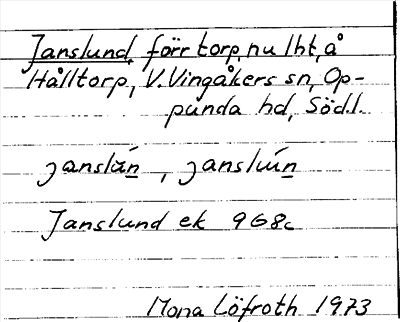 Janslund, förr torp, nu lht, å
Hålltorp, V. Vingåkers sn, Op-
punda hd, Söd.l.
Janslund ek 9G8c
Mona Löfroth 1973